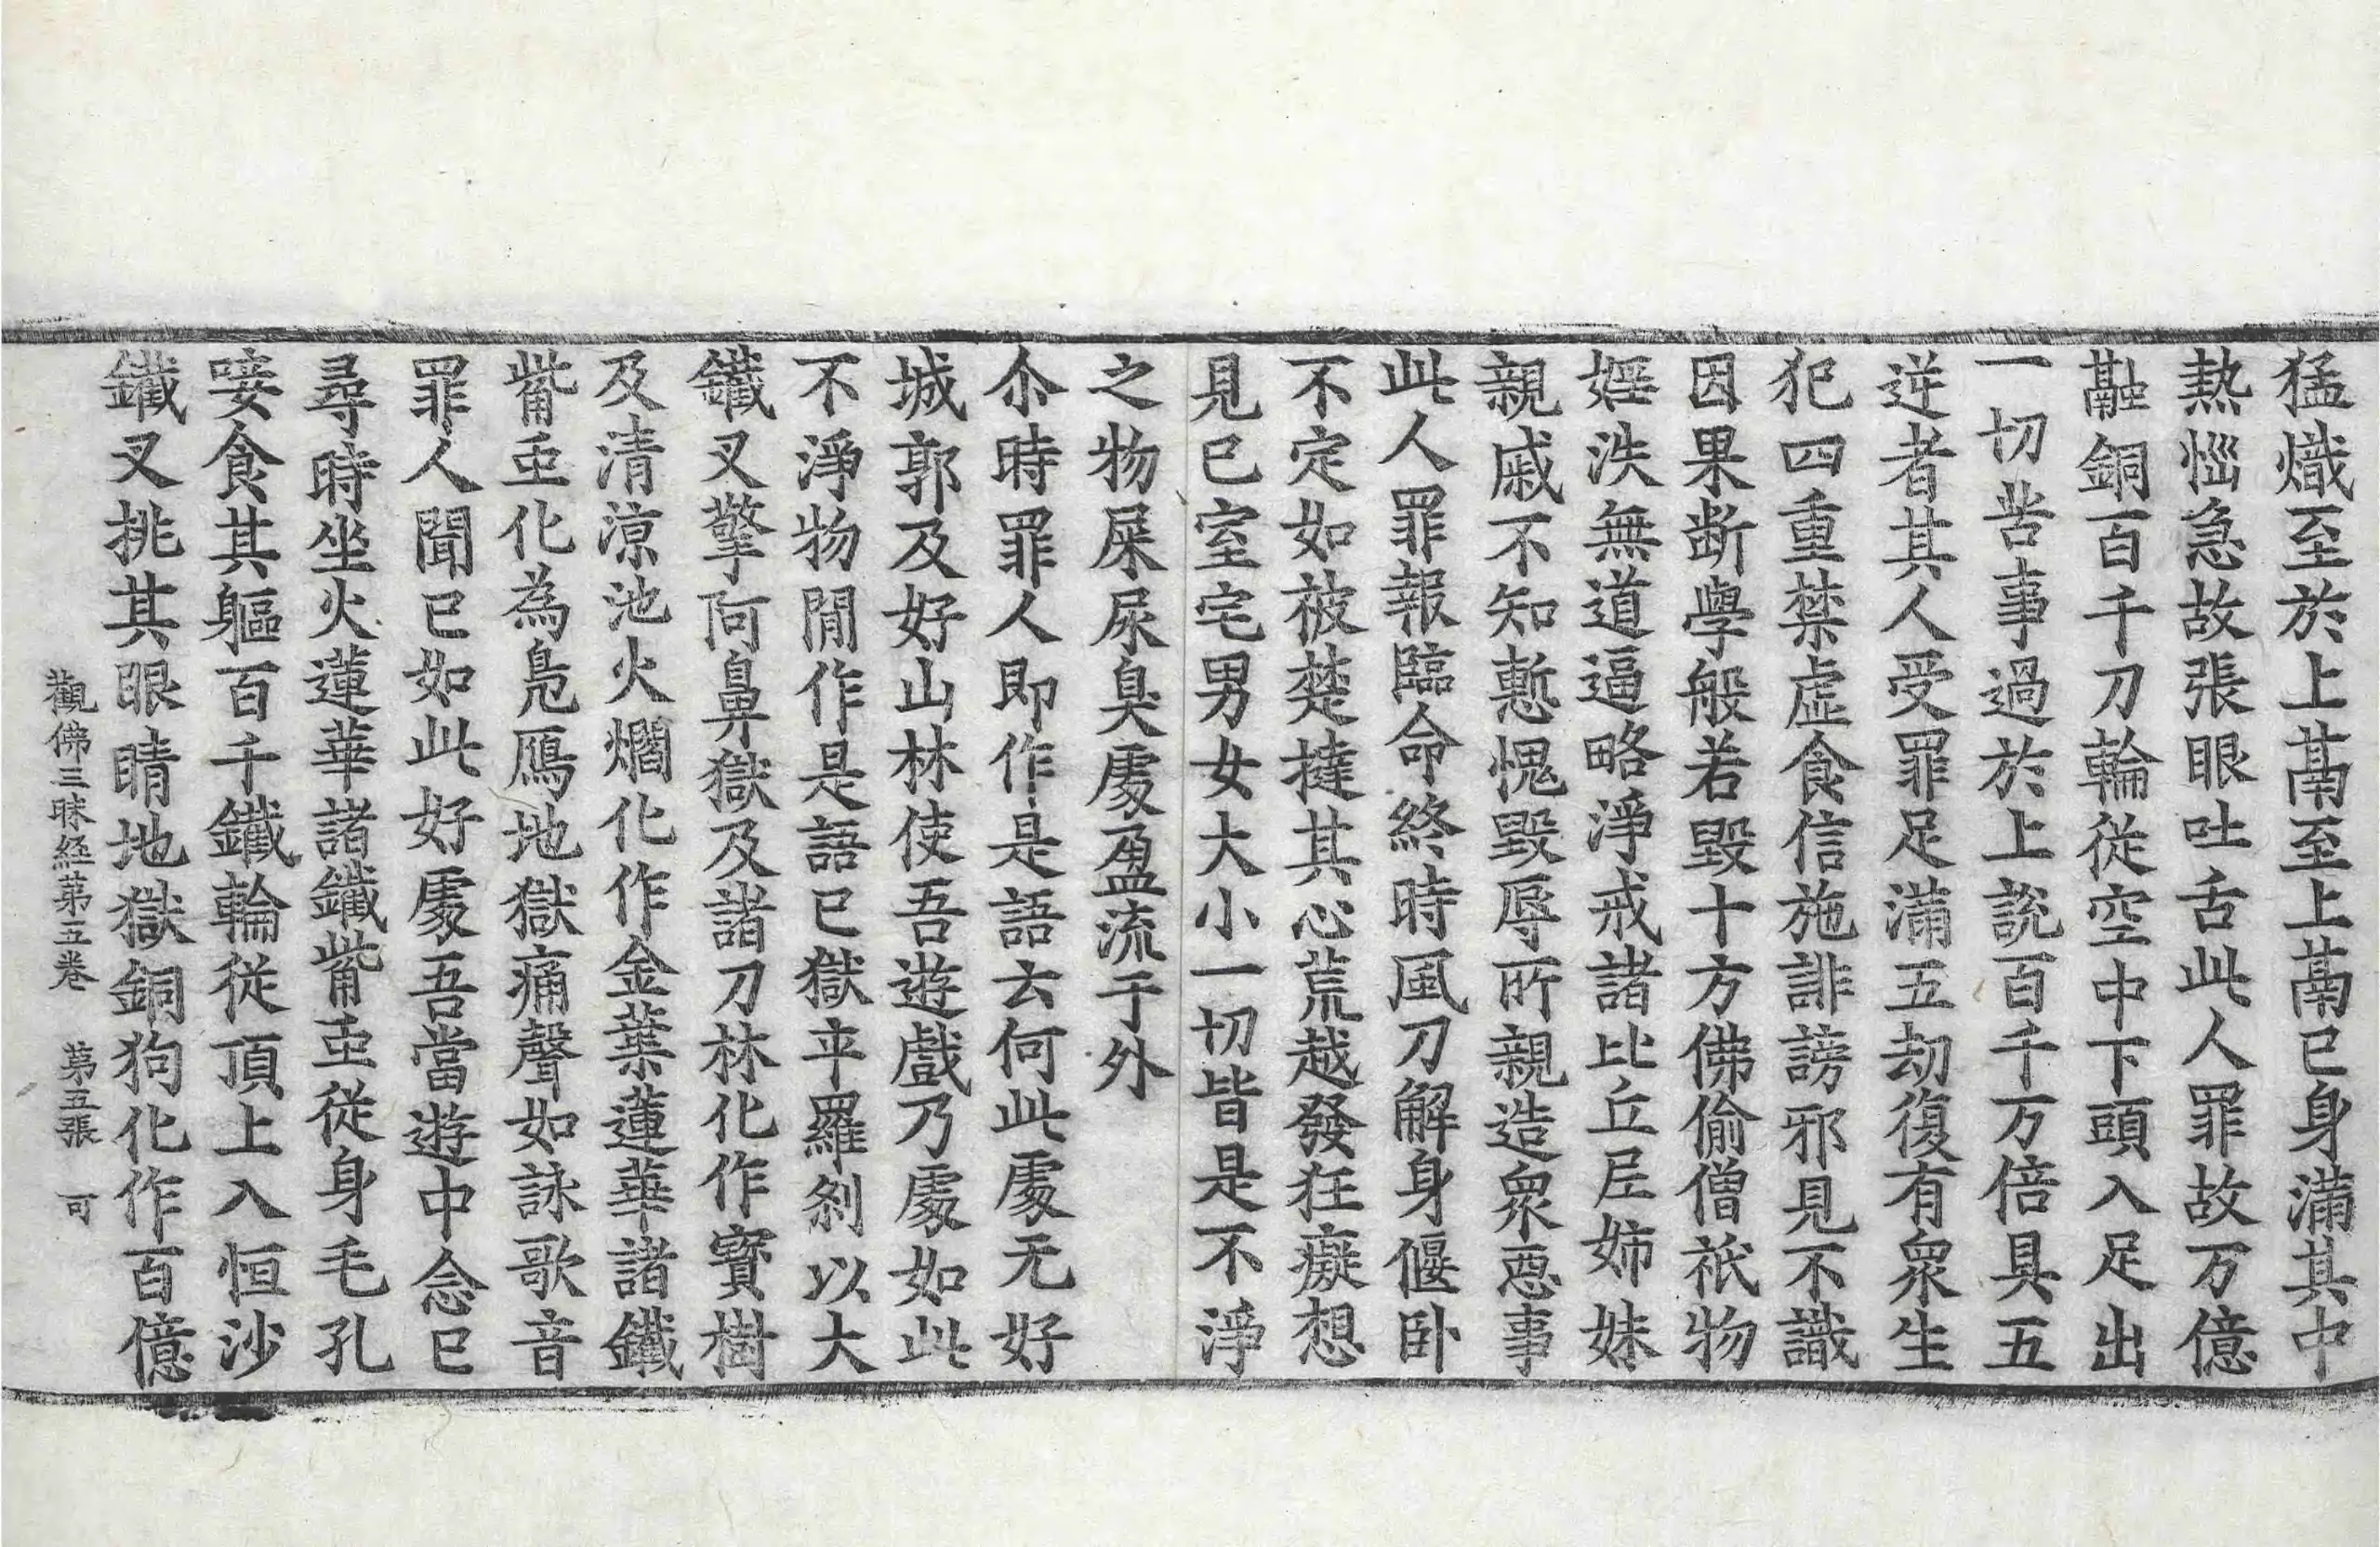 猛熾至於上鬲至上鬲已身滿其中
熱惱急故張眼吐舌此人罪故万億
融銅百千刀輪從空中下頭入足出
一切苦事過於上說百千万倍具五
逆者其人受罪足滿五劫復有衆生
犯四重禁虛食信施誹謗邪見不識
因果斷學般若毀十方佛偷僧祇物
婬泆無道逼略淨戒諸比丘尼姉妹
親戚不知慙愧毀辱所親造衆惡事
此人罪報臨命終時風刀解身偃卧
不定如被楚撻其心荒越發狂癡想
見已室宅男女大小一切皆是不淨
之物屎尿臭處盈流于外
尒時罪人即作是語云何此處无好
城郭及好山林使吾遊戲乃處如此
不淨物閒作是語已獄卒羅剎以大
鐵叉擎阿鼻獄及諸刀林化作寳樹
及清涼池火爓化作金葉蓮華諸鐵
觜䖝化為鳧鴈地獄痛聲如詠歌音
罪人聞已如此好處吾當遊中念已
尋時坐火蓮華諸鐵觜䖝從身毛孔
唼食其軀百千鐵輪從頂上入恒沙
鐵叉挑其眼睛地獄銅狗化作百億
觀佛三昧經第五卷 第五張 可